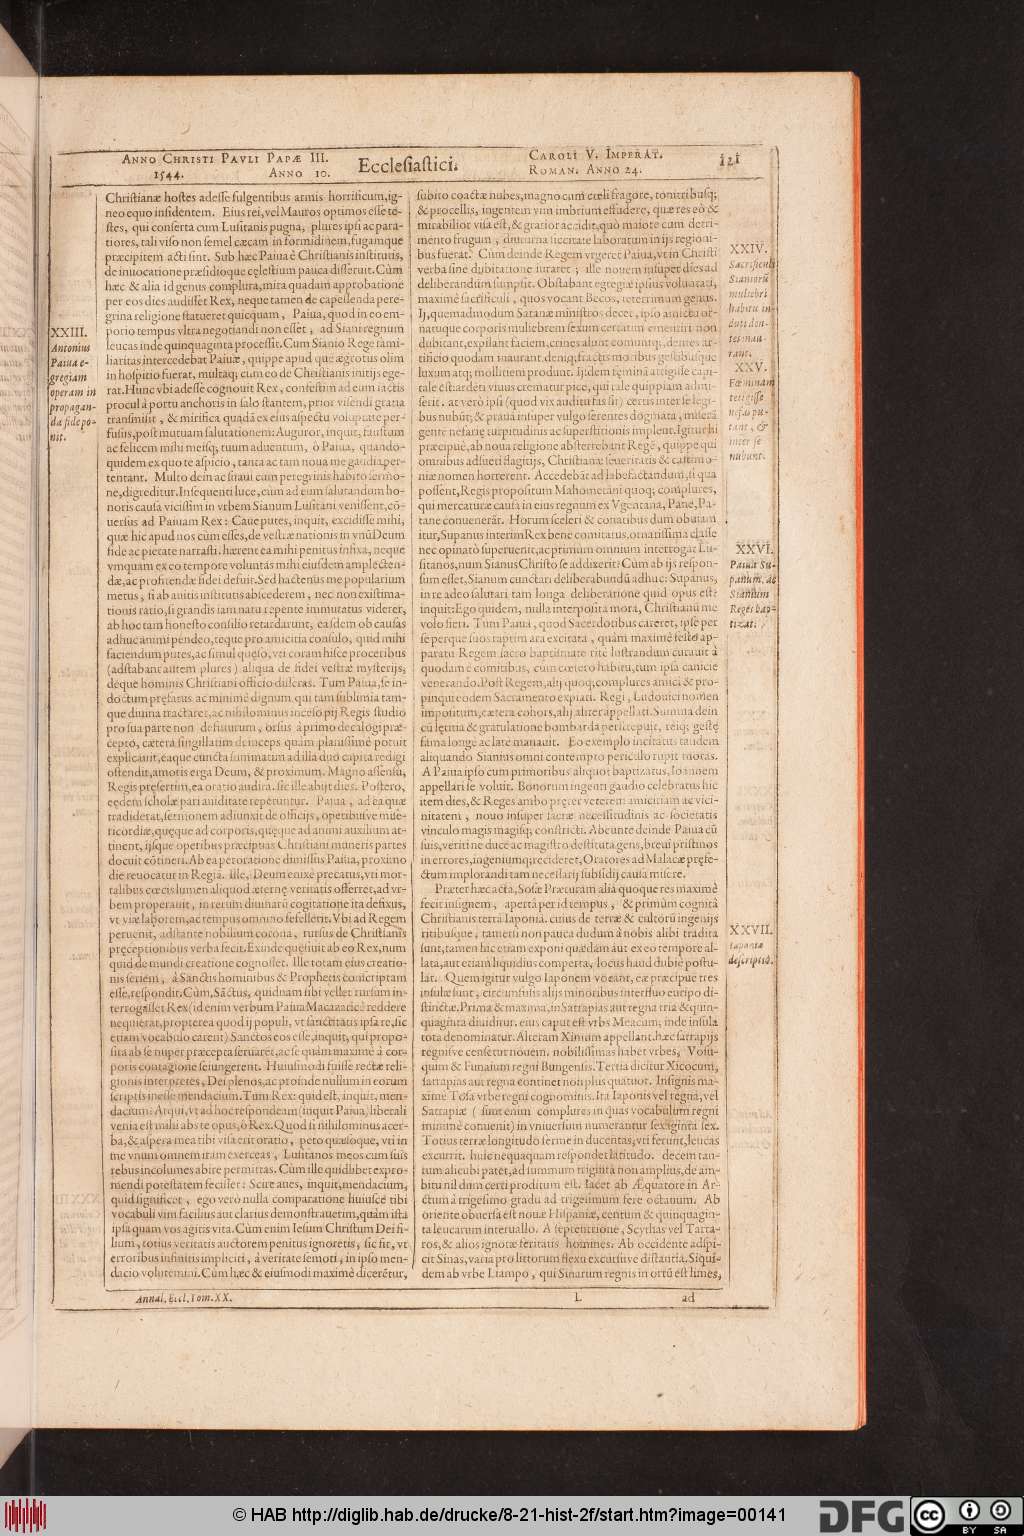 ANNO CHRISTI PAVLI PAPÆ III.
1544. ANNO 10.
Ecclesiastici.
CAROLI V. IMPERAT.
ROMAN. ANNO 24.
121
XXIII.
Antonius
Paiua e-
gregiam
operam in
propagan-
da fide po-
nit.
Christianæ hostes adesse fulgentibus armis horrificum, ig-
neo equo insidentem. Eius rei, vel Mauros optimos esse te-
stes, qui conserta cum Lusitanis pugna, plures ipsi ac para-
tiores, tali viso non semel cæcam in formidinem, fugamque
præcipitem acti sint. Sub hæc Paiua è Christianis institutis,
de inuocatione præsidioque cęlestium pauca disseruit. Cùm
hæc & alia id genus complura, mira quadam approbatione
per eos dies audisset Rex, neque tamen de capessenda pere-
grina religione statueret quicquam, Paiua, quod in eo em-
porio tempus vltra negotiandi non esset, ad Siani regnum
leucas inde quinquaginta processit. Cum Sianio Rege fami-
liaritas intercedebat Paiuæ, quippe apud quē ægrotus olim
in hospitio fuerat, multaq; cum eo de Christianis initijs ege-
rat. Hunc vbi adesse cognouit Rex, confestim ad eum iactis
procul à portu anchoris in salo stantem, prior visendi gratia
transmisit, & mirifica quadā ex eius aspectu voluptate per-
fusus, post mutuam salutationem: Auguror, inquit, faustum
ac felicem mihi meisq; tuum aduentum, ò Paiua, quando-
quidem ex quo te aspicio, tanta ac tam noua me gaudia per-
tentant. Multo dein ac suaui cum peregrinis habito sermo-
ne, digreditur. Insequenti luce, cùm ad eum salutandum ho-
noris causa vicissim in vrbem Sianum Lusitani venissent, cō-
uersus ad Paiuam Rex: Caue putes, inquit, excidisse mihi,
quæ hic apud nos cùm esses, de vestræ nationis in vnū Deum
fide ac pietate narrasti. hærent ea mihi penitus infixa, neque
vmquam ex eo tempore voluntas mihi eiusdem amplecten-
dæ, ac profitendæ fidei defuit. Sed hactenus me popularium
metus, si ab auitis institutis abscederem, nec non existima-
tionis ratio, si grandis iam natu repente immutatus viderer,
ab hoc tam honesto consilio retardarunt, easdem ob causas
adhuc animi pendeo, teque pro amicitia consulo, quid mihi
faciendum putes, ac simul quęso, vti coram hisce proceribus
(adstabant autem plures) aliqua de fidei vestræ mysterijs,
deque hominis Christiani officio disseras. Tum Paiua, se in-
doctum præfatus ac minimè dignum qui tam sublimia tam-
que diuina tractaret, ac nihilominus incēso pij Regis studio
pro sua parte non defuturum, orsus à primo decalogi præ-
cepto, cætera singillatim deinceps quàm planissimè potuit
explicauit, eaque cuncta summatim ad illa duo capita redigi
ostendit, amoris erga Deum, & proximum. Magno assensu,
Regis prȩsertim, ea oratio audita. sic ille abijt dies. Postero,
eędem scholæ pari auiditate repetuntur. Paiua, ad ea quæ
tradiderat, sermonem adiunxit de officijs, operibusve mise-
ricordiæ, quęque ad corporis, quęque ad animi auxilium at-
tinent, ijsque operibus præcipuas Christiani muneris partes
docuit cōtineri. Ab ea peroratione dimissus Paiua, proximo
die reuocatur in Regiā. Ille, Deum enixè precatus, vti mor-
talibus cœcis lumen aliquod æternę veritatis offerret, ad vr-
bem properauit, in rerum diuinarū cogitatione ita defixus,
vt viæ laborem, ac tempus omnino fefellerit. Vbi ad Regem
peruenit, adstante nobilium corona, rursus de Christianis
pręceptionibus verba fecit. Exinde quęsiuit ab eo Rex, num
quid de mundi creatione cognosset. Ille totam eius creatio-
nis seriem, à Sanctis hominibus & Prophetis conscriptam
esse, respondit. Cùm, Sāctus, quidnam sibi vellet rursum in-
terrogasset Rex (id enim verbum Paiua Macazaricè reddere
nequierat, propterea quod ij populi, vt sanctitatis ipsa re, sic
etiam vocabulo carent) Sanctos eos esse, inquit, qui propo-
sita ab se nuper præcepta seruaret, ac se quàm maximè à cor-
poris contagione seiungerent. Huiusmodi fuisse rectæ reli-
gionis interpretes, Dei plenos, ac proinde nullum in eorum
scriptis inesse mendacium. Tum Rex: quid est, inquit, men-
dacium? Atqui, vt ad hoc respondeam (inquit Paiua) liberali
venia est mihi abs te opus, ò Rex. Quod si nihilominus acer-
ba, & aspera mea tibi visa erit oratio, peto quæsoque, vti in
me vnum omnem iram exerceas, Lusitanos meos cum suis
rebus incolumes abire permittas. Cùm ille quidlibet expro-
mendi potestatem fecisset: Scire aues, inquit, mendacium,
quid significet, ego verò nulla comparatione huiusce tibi
vocabuli vim facilius aut clarius demonstrauerim, quàm istâ
ipsa quam vos agitis vita. Cùm enim Iesum Christum Dei fi-
lium, totius veritatis auctorem penitus ignoretis, sic fit, vt
erroribus infinitis impliciti, à veritate semoti, in ipso men-
dacio volutemini. Cùm hæc & eiusmodi maximè dicerētur,
subito coactæ nubes, magno cum cœli fragore, tonitribusq;
& procellis, ingentem vim imbrium effudere, quæ res eò &
mirabilior visa est, & gratior accidit, quò maiore cum detri-
mento frugum, diuturna siccitate laboratum in ijs regioni-
bus fuerat. Cùm deinde Regem vrgeret Paiua, vt in Christi
verba sine dubitatione iuraret; ille nouem insuper dies ad
deliberandum sumpsit. Obstabant egregiæ ipsius voluntati,
maximè sacrificuli, quos vocant Becos, teterrimum genus.
Ij, quemadmodum Satanæ ministros decet, ipso amictu or-
natuque corporis muliebrem sexum certatim ementiri non
dubitant, expilant faciem, crines alunt comuntq;, dentes ar-
tificio quodam inaurant, deniq; fractis moribus gestibusque
luxum atq; mollitiem produnt. Ijdem fęminā attigisse capi-
tale est: ardeti viuus crematur pice, qui tale quippiam admi-
serit. at verò ipsi (quod vix auditu fas sit) certis inter se legi-
bus nubūt; & praua insuper vulgo serentes dogmata, miserā
gentē nefariè turpitudinis ac superstitionis implent. Igitur hi
præcipuè, ab noua religione absterrebant Regē, quippe qui
omnibus adsueti flagitijs, Christianæ seueritatis & castimo-
niæ nomen horrerent. Accedebāt ad labefactandum, si qua
possent, Regis propositum Mahometani quoq; complures,
qui mercaturæ causa in eius regnum ex Vgentana, Pane, Pa-
tane conuenerāt. Horum sceleri & conatibus dum obuiam
itur, Supanus interim Rex bene comitatus, ornatissima classe
nec opinatò superuenit, ac primum omnium interrogat Lu-
sitanos, num Sianus Christo se addixerit? Cùm ab ijs respon-
sum esset, Sianum cunctari deliberabundū adhuc: Supanus,
in re adeo salutari tam longa deliberatione quid opus est?
inquit: Ego quidem, nulla interposita mora, Christianū me
volo fieri. Tum Paiua, quod Sacerdotibus careret, ipse per
se perque suos raptim ara excitata, quàm maximè festo ap-
paratu Regem sacro baptismate ritè lustrandum curauit à
quodam è comitibus, cùm cœtero habitu, tum ipsa canicie
venerando. Post Regem, alij quoq; complures amici & pro-
pinqui eodem Sacramento expiati. Regi, Ludouici nomen
impositum, cætera cohors, alij aliter appellati. Summa dein
cū lętitia & gratulatione bombarda perstrepuit, reiq; gestę
fama longè ac latè manauit. Eo exemplo incitatus tandem
aliquando Sianus omni contempto periculo rupit moras.
A Paiua ipso cum primoribus aliquot baptizatus, Ioannem
appellari se voluit. Bonorum ingenti gaudio celebratus hic
item dies, & Reges ambo pręter veterem amicitiam ac vici-
nitatem, nouo insuper sacræ necessitudinis ac societatis
vinculo magis magisq; constricti. Abeunte deinde Paiua cū
suis, veriti ne ducē ac magistro destituta gens, breui pristinos
in errores, ingeniumq; recideret, Oratores ad Malacæ pręfe-
ctum implorandi tam necessarij subsidij causa misere.
Præter hæc acta, Sosæ Præturam alia quoque res maximè
fecit insignem, aperta per id tempus, & primùm cognita
Christianis terra Iaponia. cuius de terræ & cultorū ingenijs
ritibusque, tametsi non pauca dudum à nobis alibi tradita
sunt, tamen hic etiam exponi quædam aut ex eo tempore al-
lata, aut etiam liquidius comperta, locus haud dubiè postu-
lat. Quem igitur vulgo Iaponem vocant, eæ præcipuè tres
insulæ sunt, circunfusis alijs minoribus interfluo euripo di-
stinctæ. Prima & maxima, in Satrapias aut regna tria & quin-
quaginta diuiditur. eius caput est vrbs Meacum, inde insula
tota denominatur. Alteram Ximum appellant. hæc satrapijs
regnisve censetur nouem. nobilissimas habet vrbes, Vosu-
quim & Funaium regni Bungensis. Tertia dicitur Xicocum,
satrapias aut regna continet non plus quatuor. Insignis ma-
ximè Tosa vrbe regni cognominis. Ita Iaponis vel regna, vel
Satrapiæ (sunt enim complures in quas vocabulum regni
minimè conuenit) in vniuersum numerantur sexaginta sex.
Totius terræ longitudo fermè in ducentas, vti ferunt, leucas
excurrit. huic nequaquam respondet latitudo. decem tan-
tum alicubi patet, ad summum triginta non amplius, de am-
bitu nil dum certi proditum est. Iacet ab Æquatore in Ar-
ctum à trigesimo gradu ad trigesimum fere octauum. Ab
oriente obuersa est nouæ Hispaniæ, centum & quinquagin-
ta leucarum interuallo. A septentrione, Scythas vel Tarta-
ros, & alios ignotæ feritatis homines. Ab occidente adspi-
cit Sinas, varia pro littorum flexu excursuve distantia. Siqui-
dem ab vrbe Liampo, qui Sinarum regnis in ortū est limes,
XXIV.
Sacrificuli
Sianiorū
muliebri
habitu in-
duti den-
tes inau-
rant.
XXV.
Fœminam
tetigisse
nefas pu-
tant, &
inter se
nubunt.
XXVI.
Paiua Su-
panum, ac
Sianum
Reges bap-
tizat.
XXVII.
Iaponiæ
descriptio.
Annal. Eccl. Tom. XX.
L
ad
© HAB http://diglib.hab.de/drucke/8-21-hist-2f/start.htm?image=00141
DFG
cc
BY SA